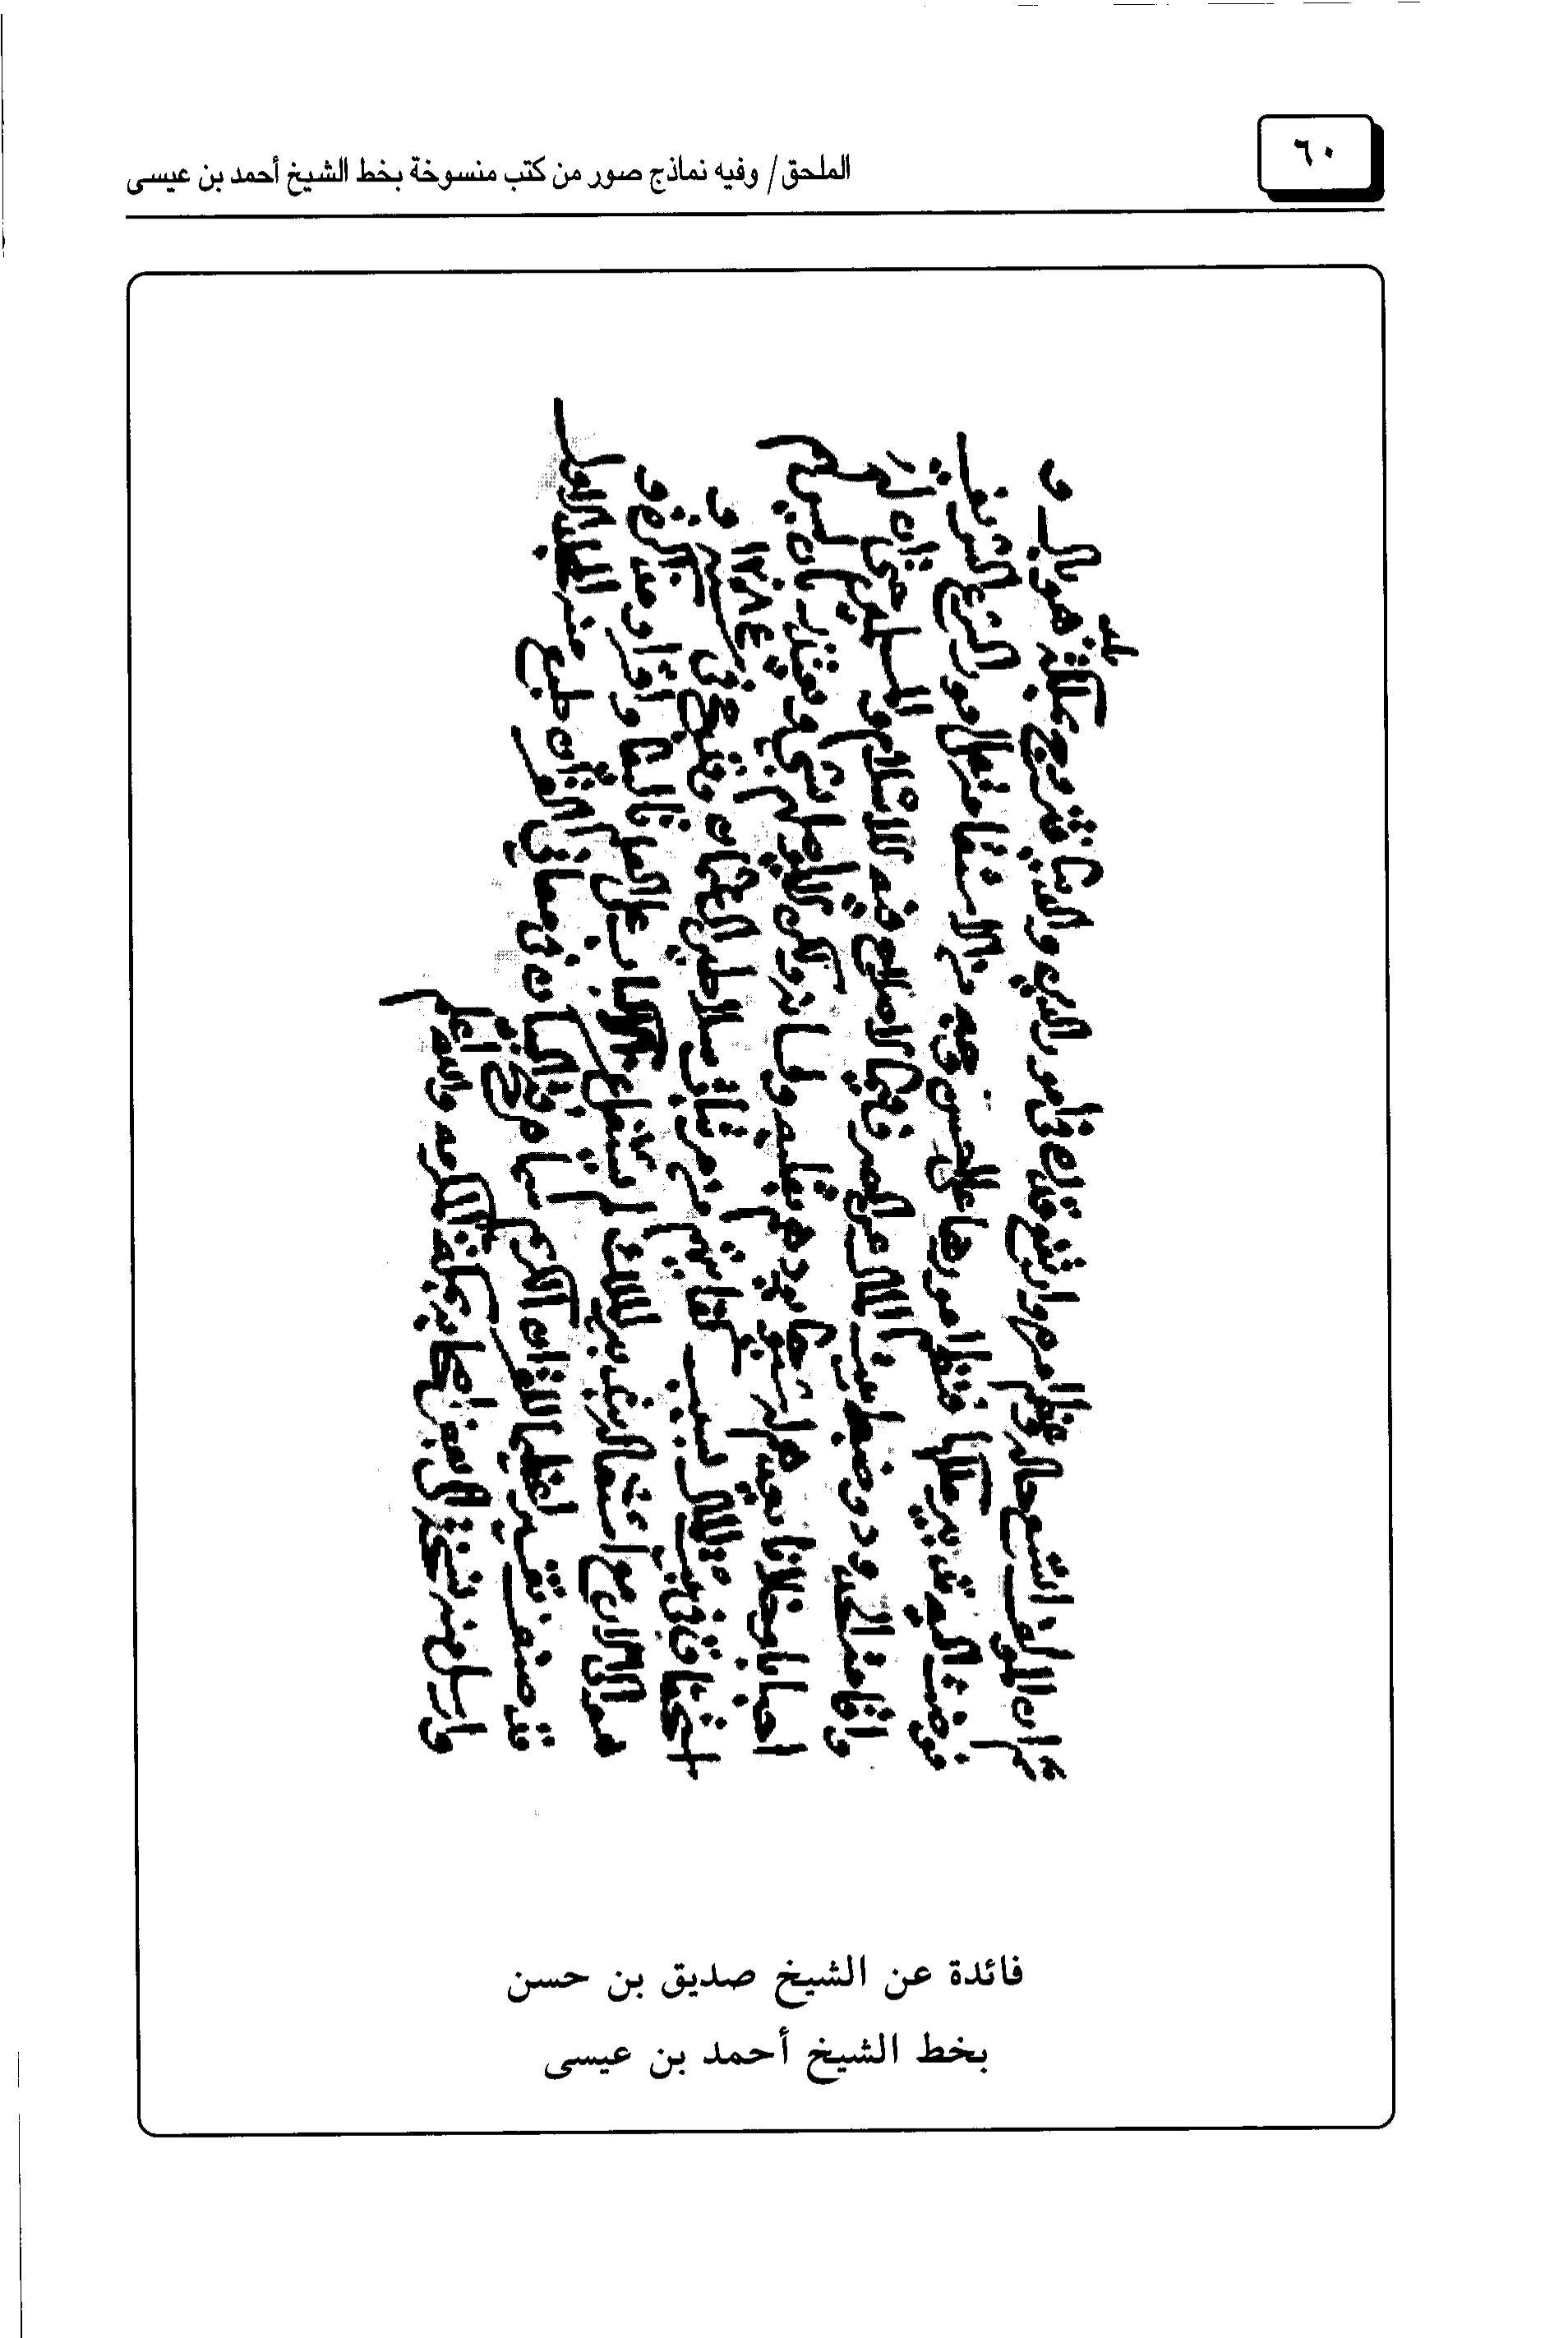 ٦٠
الملحق/ وفيه نماذج صور من كتب منسوخة بخط الشيخ أحمد بن عيسى
ثم ان المولف اتسع حاله وعظم امره وارتفع قدره في امور الدين والدنيا فتزوج بملكة بلد هو بال و
فوضت اليه تدبير ملكها فنظم امورها على احسن وجه من الاستقامة امور الشرع الشريف
واقامة الحدود وضبط بيت المال عن الصرف فيما لا صلاح فيه للاسلام والمسلمين حتى ان له
احبابا وخلانا يودهم بقلبه ولسانه ولكن لا يواصلهم بشي ويعتذر بانه ليس لهم
استحقاق في بيت المال بسبب كفايتهم من مرتبات سلاطين ال عثمان وقد حج في ١٢٨٤ و
هو الى الان مع اشتغاله بتدبير الملك لم يشتغل عن على العلم تاليفا واقراء و
قد صنف تفسيرا عظيما للقران الكريم سماه فتح البيان في معاني القران طبع منه المجلد الاول
وارسل منه نسخة الى بعض احبابه بمكة المكرمه والله اعلم
فائدة عن الشيخ صديق بن حسن
بخط الشيخ أحمد بن عيسى